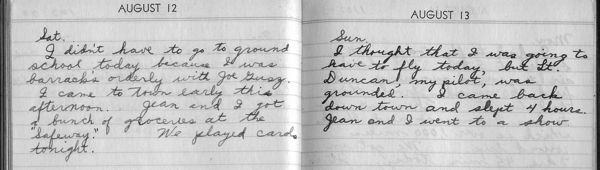 AUGUST 12
Sat.
I didn't have to go to ground
school today because I was
barracks orderly with Joe Gusz.
I came to town early this
afternoon. Jean and I got
a bunch of groceries at the
"Safeway." We played cards
tonight.
AUGUST 13
Sun.
I thought that I was going to
have to fly today, but Lt.
Duncan, my pilot, was
grounded. I came back
down town and slept 4 hours.
Jean and I went to a show